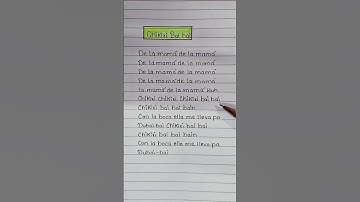 Chikini Bai bai
De la mamá de la mamá
De la mamá de la mamá
De la mamá de la mamá
De la mamá de la mamá
La mamá de la mamá Kuh
Chikini Chikini Chikini bai bai
Chikini bai bai bain
Con la boca ella me lleva pa
Dubai bai Chikini bai bai
Chikini bai bai bain
Con la boca ella me lleva pa
Dubai-bai